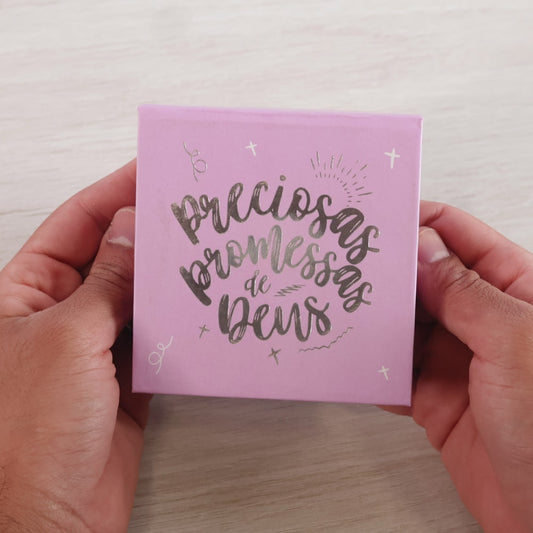 Preciosas
promessas
de
Deus